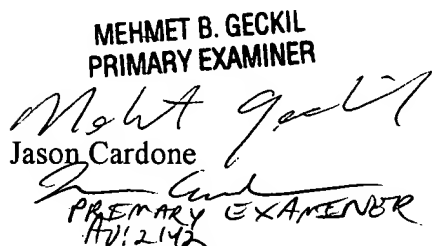 MEHMET B. GECKIL
PRIMARY EXAMINER
Mehmet Geckil
Jason Cardone
PREMARY EXAMENER
AU: 2142